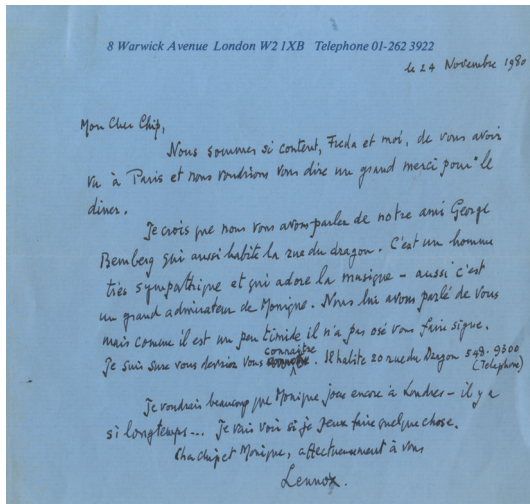 8 Warwick Avenue London W2 1XB Telephone 01-262 3922
le 24 Novembre 1980
Mon Cher Chip,
Nous sommes si content, Freda et moi, de vous avoir
vu à Paris et nous voudrions vous dire un grand merci pour le
diner.
Je crois que nous vous avons parler de notre ami George
Bemberg qui aussi habite la rue du dragon. C'est un homme
très sympathique et qui adore la musique - aussi c'est
un grand admirateur de Monique. Nous lui avons parlé de vous
mais comme il est un peu timide il n'a pas osé vous faire signe.
connaitre
Je suis sure vous devriez vous . Il habite 20 rue du Dragon 548. 9300
(Telephone)
Je voudrais beaucoup que Monique joue encore à Londres - il y a
si longtemps... Je vais voir si je peux faire quelque chose.
Cher chip et Monique, affectueusement à vous
Lennox.